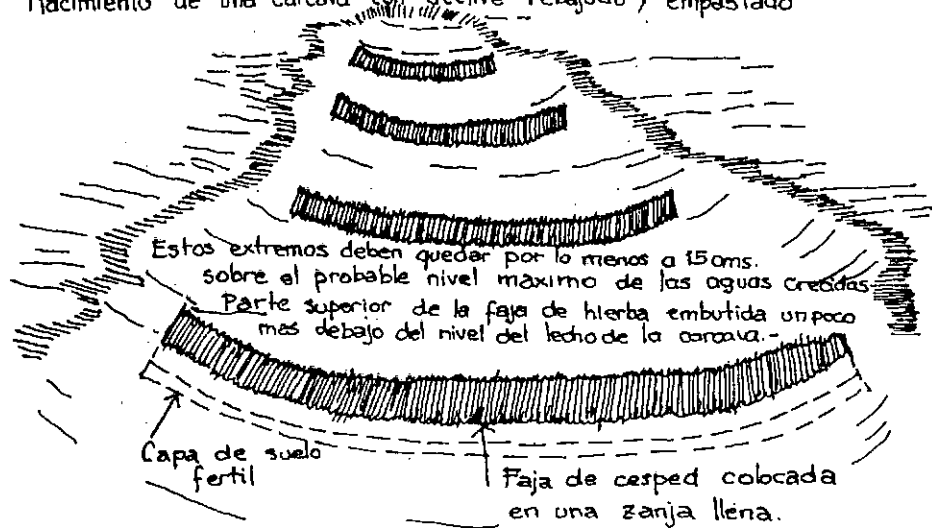 Nacimiento de una carcava con declive rebajado y empastado
Estos extremos deben quedar por lo menos a 15 cms.
sobre el probable nivel maximo de las aguas crecidas
Parte superior de la faja de hierba embutida un poco
mas debajo del nivel del lecho de la carcava.-
Capa de suelo
fertil
Faja de cesped colocada
en una zanja llena.